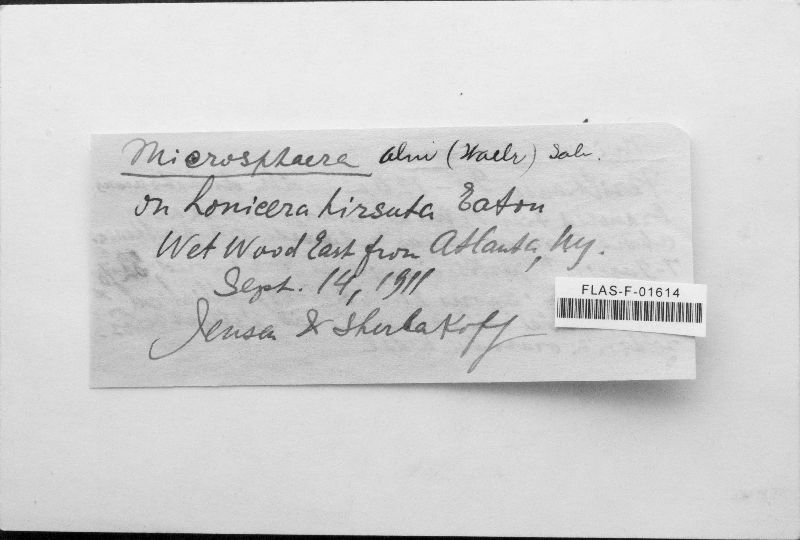 Microsphaera alni (Wallr) Salm.
on Lonicera hirsuta Eaton
Wet Wood East from Atlanta, Ny.
Sept. 14, 1911
Jensen & Sherbakoff
FLAS-F-01614